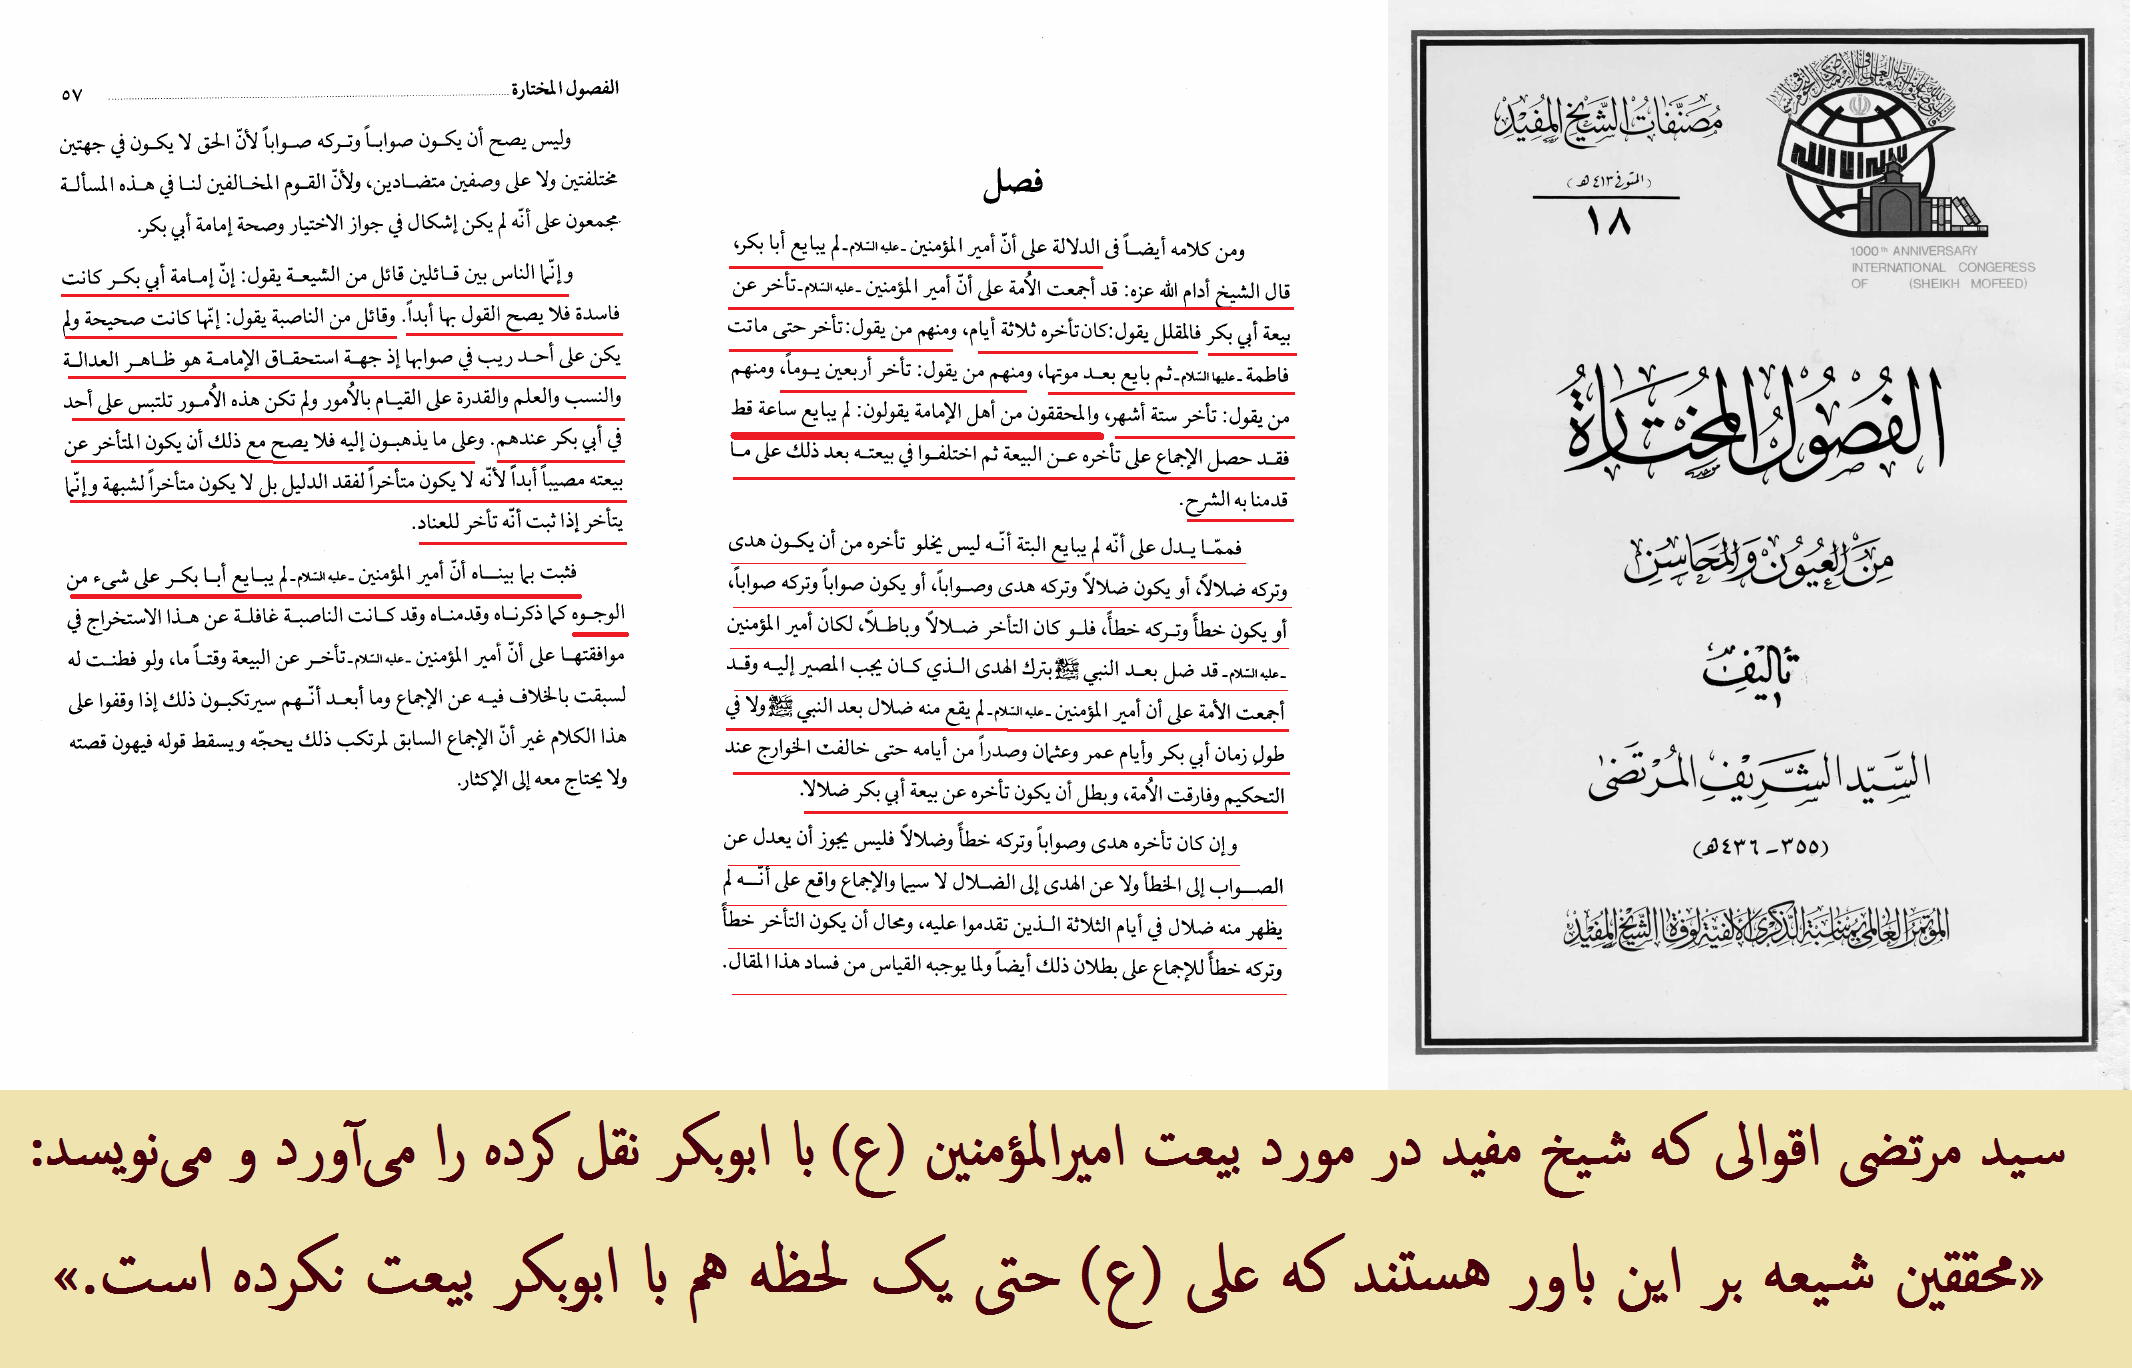 مصنفات الشيخ المفيد
(المتوفى ٤١٣ هـ)
١٨
1000 th ANNIVERSARY
INTERNATIONAL CONGERESS
OF (SHEIKH MOFEED)
الفصول المختارة
من العيون والمحاسن
تأليف
السيد الشريف المرتضى
(٣٥٥ - ٤٣٦هـ)
المؤتمر العالمي بمناسبة الذكرى الألفية لوفاة الشيخ المفيد
فصل
ومن كلامه أيضاً في الدلالة على أنّ أمير المؤمنين -عليه السّلام- لم يبايع أبا بكر،
قال الشيخ أدام الله عزه: قد أجمعت الأُمة على أنّ أمير المؤمنين -عليه السّلام- تأخر عن
بيعة أبي بكر فالمقلل يقول: كان تأخره ثلاثة أيام، ومنهم من يقول: تأخر حتى ماتت
فاطمة -عليها السّلام- ثم بايع بعد موتها، ومنهم من يقول: تأخر أربعين يوماً، ومنهم
من يقول: تأخر ستة أشهر، والمحققون من أهل الإمامة يقولون: لم يبايع ساعة قط
فقد حصل الإجماع على تأخره عن البيعة ثم اختلفوا في بيعته بعد ذلك على ما
قدمنا به الشرح.
فممّا يدل على أنّه لم يبايع البتة أنّه ليس يخلو تأخره من أن يكون هدى
وتركه ضلالاً، أو يكون ضلالاً وتركه هدى وصواباً، أو يكون صواباً وتركه صواباً،
أو يكون خطأً وتركه خطأً، فلو كان التأخر ضلالاً وباطلاً، لكان أمير المؤمنين
-عليه السّلام- قد ضل بعد النبي ﷺ بترك الهدى الذي كان يجب المصير إليه وقد
أجمعت الأمة على أن أمير المؤمنين -عليه السّلام- لم يقع منه ضلال بعد النبي ﷺ ولا في
طول زمان أبي بكر وأيام عمر وعثمان وصدراً من أيامه حتى خالفت الخوارج عند
التحكيم وفارقت الأُمة، وبطل أن يكون تأخره عن بيعة أبي بكر ضلالا.
وإن كان تأخره هدى وصواباً وتركه خطأً وضلالاً فليس يجوز أن يعدل عن
الصواب إلى الخطأ ولا عن الهدى إلى الضلال لا سيما والإجماع واقع على أنّه لم
يظهر منه ضلال في أيام الثلاثة الذين تقدموا عليه، ومحال أن يكون التأخر خطأً
وتركه خطأً للإجماع على بطلان ذلك أيضاً ولما يوجبه القياس من فساد هذا المقال.
الفصول المختارة ٥٧
وليس يصح أن يكون صواباً وتركه صواباً لأنّ الحق لا يكون في جهتين
مختلفتين ولا على وصفين متضادين، ولأنّ القوم المخالفين لنا في هذه المسألة
مجمعون على أنّه لم يكن إشكال في جواز الاختيار وصحة إمامة أبي بكر.
وإنّما الناس بين قائلين قائل من الشيعة يقول: إنّ إمامة أبي بكر كانت
فاسدة فلا يصح القول بها أبداً. وقائل من الناصبة يقول: إنّها كانت صحيحة ولم
يكن على أحد ريب في صوابها إذ جهة استحقاق الإمامة هو ظاهر العدالة
والنسب والعلم والقدرة على القيام بالأُمور ولم تكن هذه الأُمور تلتبس على أحد
في أبي بكر عندهم. وعلى ما يذهبون إليه فلا يصح مع ذلك أن يكون المتأخر عن
بيعته مصيباً أبداً لأنّه لا يكون متأخراً لفقد الدليل بل لا يكون متأخراً لشبهة وإنّما
يتأخر إذا ثبت أنّه تأخر للعناد.
فثبت بما بيناه أنّ أمير المؤمنين -عليه السّلام- لم يبايع أبا بكر على شيء من
الوجوه كما ذكرناه وقدمناه وقد كانت الناصبة غافلة عن هذا الاستخراج في
موافقتها على أنّ أمير المؤمنين -عليه السّلام- تأخر عن البيعة وقتاً ما، ولو فطنت له
لسبقت بالخلاف فيه عن الإجماع وما أبعد أنّهم سيرتكبون ذلك إذا وقفوا على
هذا الكلام غير أنّ الإجماع السابق لمرتكب ذلك يحجّه ويسقط قوله فيهون قصته
ولا يحتاج معه إلى الإكثار.
سید مرتضی اقوالی که شیخ مفید در مورد بیعت امیرالمؤمنین (ع) با ابوبکر نقل کرده را می‌آورد و می‌نویسد:
«محققین شیعه بر این باور هستند که علی (ع) حتی یک لحظه هم با ابوبکر بیعت نکرده است.»